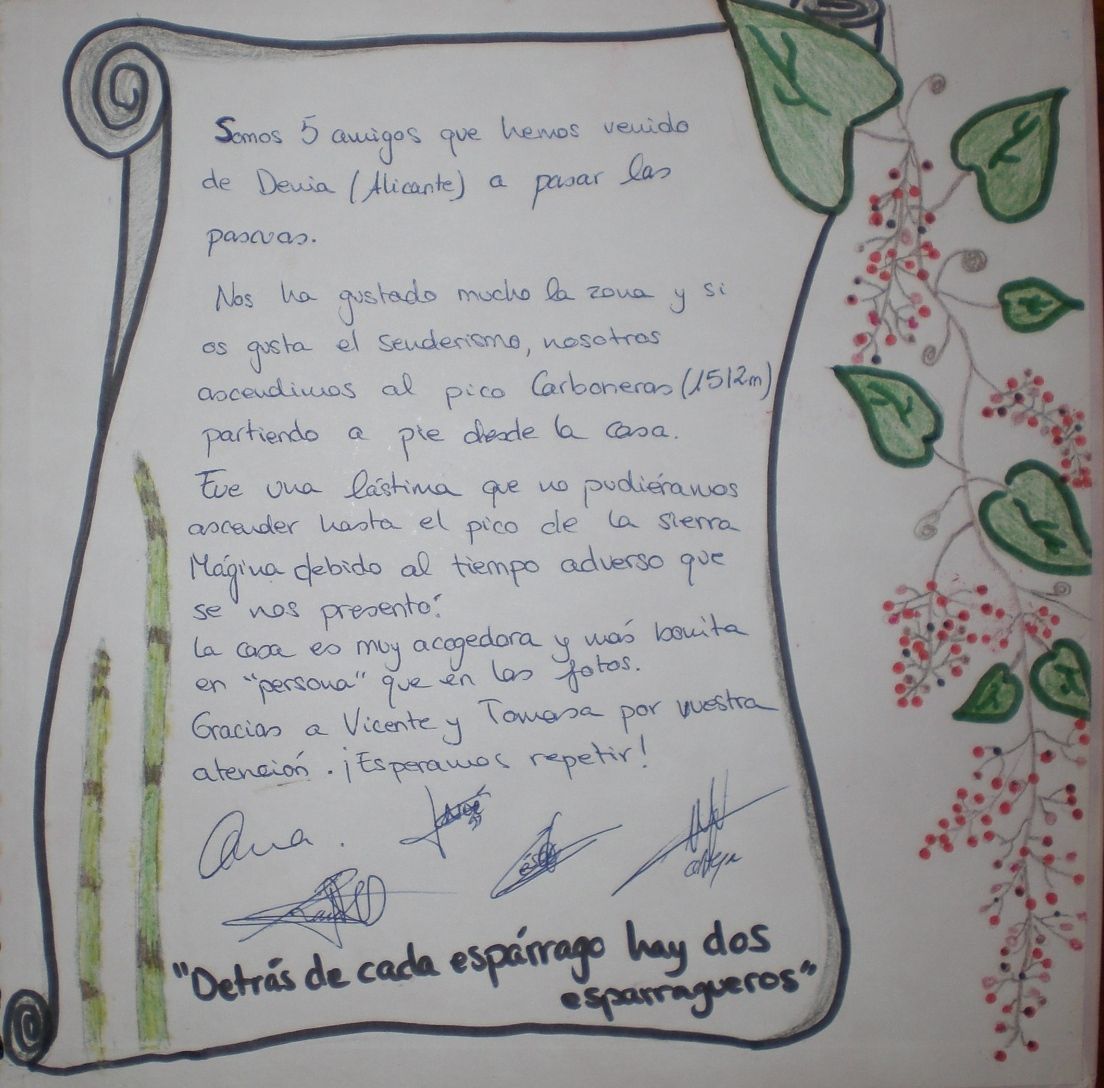 Somos 5 amigos que hemos venido
de Denia (Alicante) a pasar las
pascuas.
Nos ha gustado mucho la zona y si
os gusta el senderismo, nosotros
ascendimos al pico Carboneras (1512m)
partiendo a pie desde la casa.
Fue una lástima que no pudiéramos
ascender hasta el pico de la sierra
Mágina debido al tiempo adverso que
se nos presentó.
La casa es muy acogedora y más bonita
en "persona" que en las fotos.
Gracias a Vicente y Tomasa por vuestra
atención. ¡Esperamos repetir!
Ana.
"Detrás de cada espárrago hay dos
esparragueros"